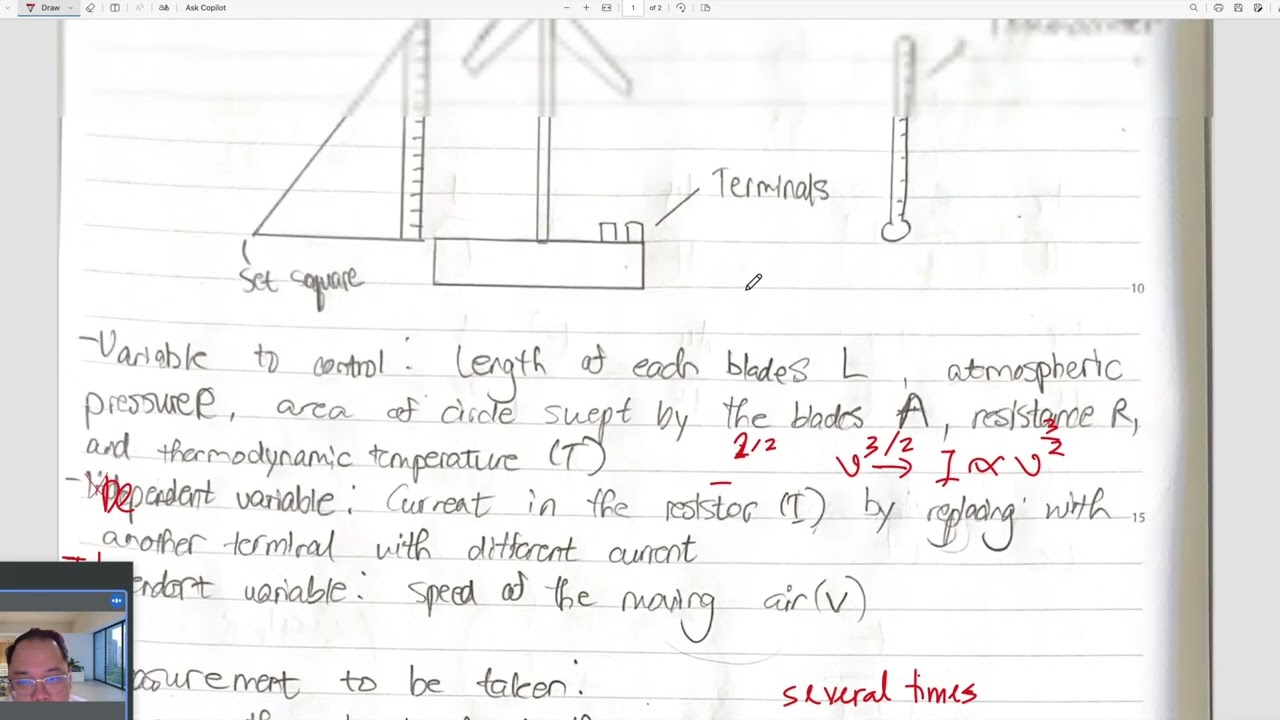 Draw
Ask Copilot
1 of 2
Terminals
Set square
10
-Variable to control: Length of each blades L, atmospheric
pressure P, area of circle swept by the blades A, resistance R,
and thermodynamic temperature (T)
v^3/2 → I ∝ v^3/2
-Dependent variable: Current in the resistor (I) by replacing with
15
another terminal with different current
endent variable: speed of the moving air (V)
asurement to be taken:
several times